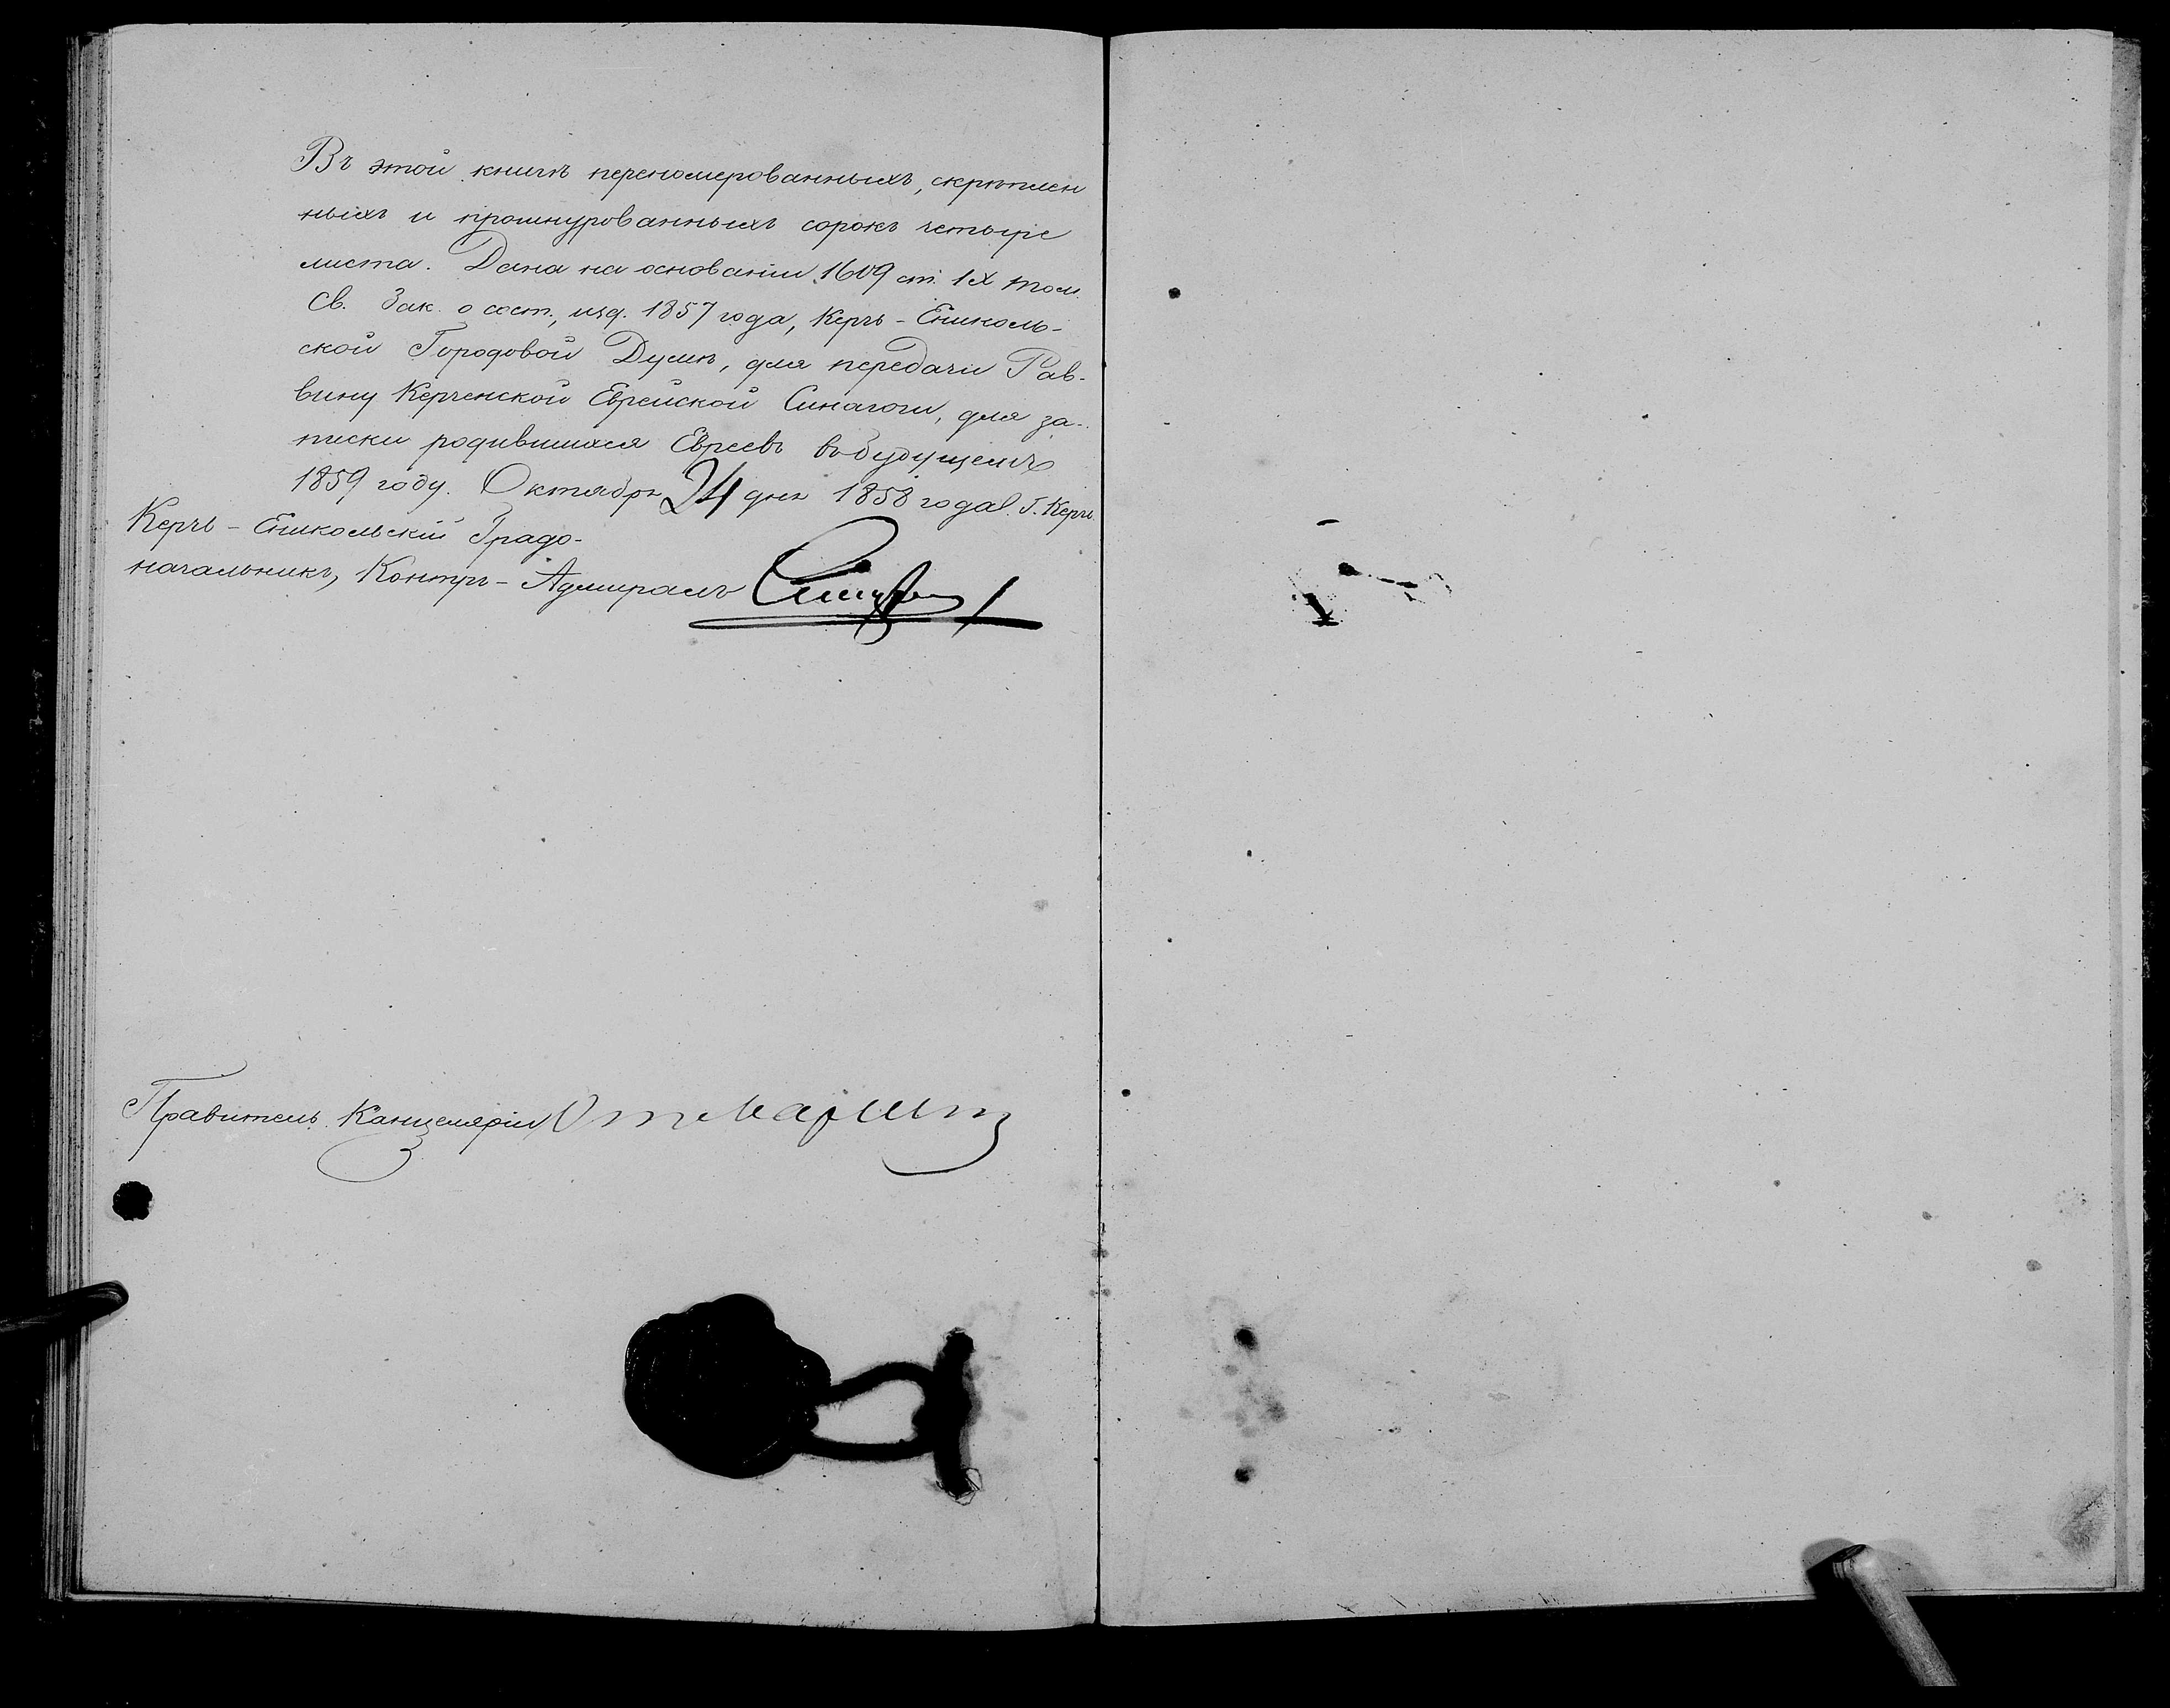 Въ этой книгѣ перенумерованныхъ, скрѣплен
ныхъ и прошнурованныхъ сорокъ четыре
листа. Дана на основаніи 1609 ст. IX том.
Св. Зак. о сост., изд. 1857 года, Керчь-Ениколь-
ской Городовой Думѣ, для передачи Рав-
вину Керченской Еврейской Синагоги, для за-
писки родившихся Евреевъ въ будущемъ
1859 году. Октября 24 дня 1858 года. Г. Керчь.
Керчь-Еникольскій Градо-
начальникъ, Контръ-Адмиралъ
Правитель Канцеляріи